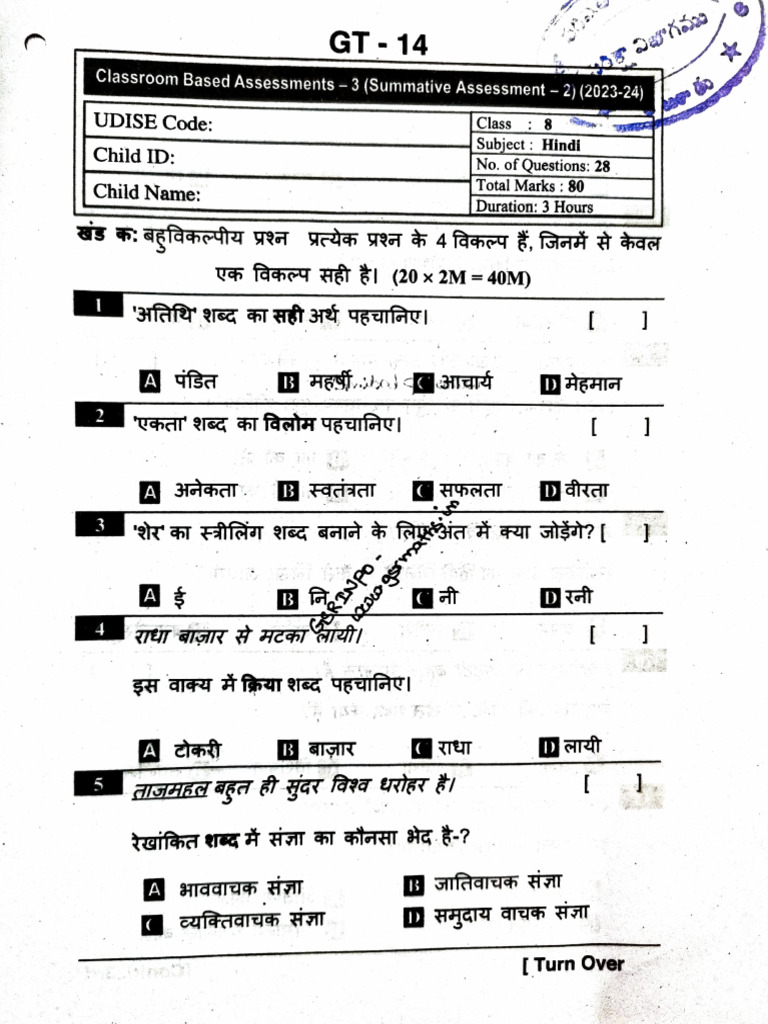 GT - 14
Classroom Based Assessments – 3 (Summative Assessment – 2) (2023-24)
UDISE Code:
Child ID:
Child Name:
Class : 8
Subject : Hindi
No. of Questions: 28
Total Marks : 80
Duration: 3 Hours
खंड क: बहुविकल्पीय प्रश्न प्रत्येक प्रश्न के 4 विकल्प हैं, जिनमें से केवल
एक विकल्प सही है। (20 × 2M = 40M)
1 'अतिथि' शब्द का सही अर्थ पहचानिए। [ ]
A पंडित B महर्षी C आचार्य D मेहमान
2 'एकता' शब्द का विलोम पहचानिए। [ ]
A अनेकता B स्वतंत्रता C सफलता D वीरता
3 'शेर' का स्त्रीलिंग शब्द बनाने के लिए अंत में क्या जोड़ेंगे? [ ]
A ई B नि C नी D रनी
4 राधा बाज़ार से मटका लायी। [ ]
इस वाक्य में क्रिया शब्द पहचानिए।
A टोकरी B बाज़ार C राधा D लायी
5 ताजमहल बहुत ही सुंदर विश्व धरोहर है। [ ]
रेखांकित शब्द में संज्ञा का कौनसा भेद है-?
A भाववाचक संज्ञा B जातिवाचक संज्ञा
C व्यक्तिवाचक संज्ञा D समुदाय वाचक संज्ञा
[ Turn Over